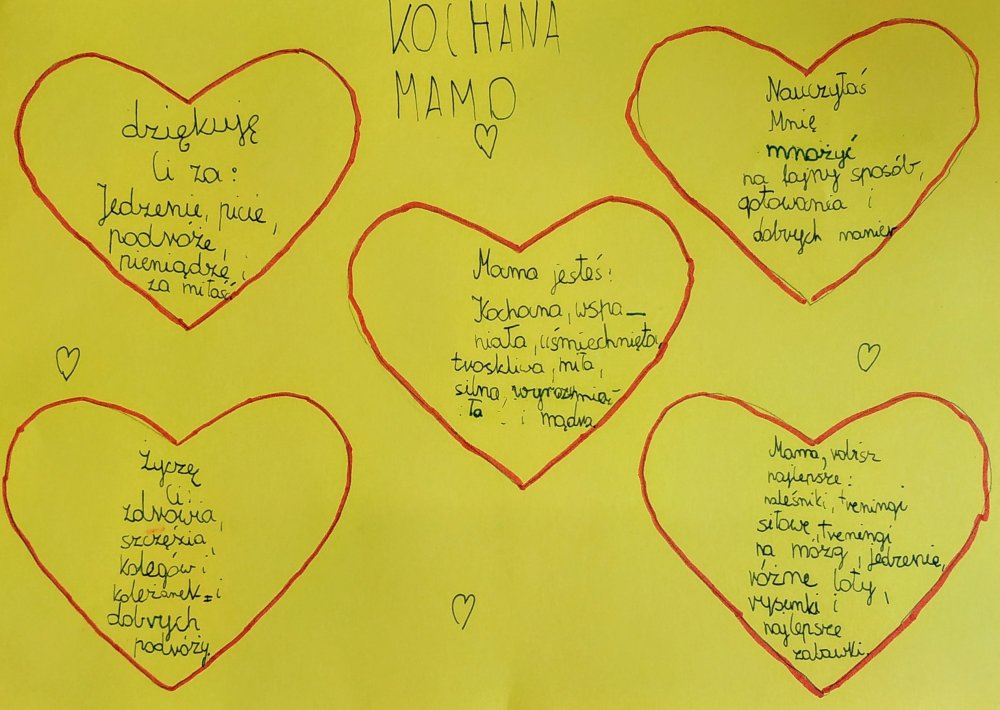 KOCHANA
MAMO
dziękuję
Ci za:
Jedzenie, picie,
podróże,
pieniądzę i
za miłość
Nauczyłaś
Mnię
mnożyć
na fajny sposób,
gotowania i
dobrych manier
Mama jesteś:
Kochana, wspa_
niała, uśmiechnięta,
troskliwa, miła,
silna, wyrozumia-
ła i mądra.
Życzę
Ci:
zdrowia,
szczęścia,
kolegów i
koleżanek i
dobrych
podróży.
Mama, robisz
najlepsze:
naleśniki, treningi
siłowe, treningi
na mózg, jedzenie,
różne loty,
rysunki i
najlepsze
zabawki.